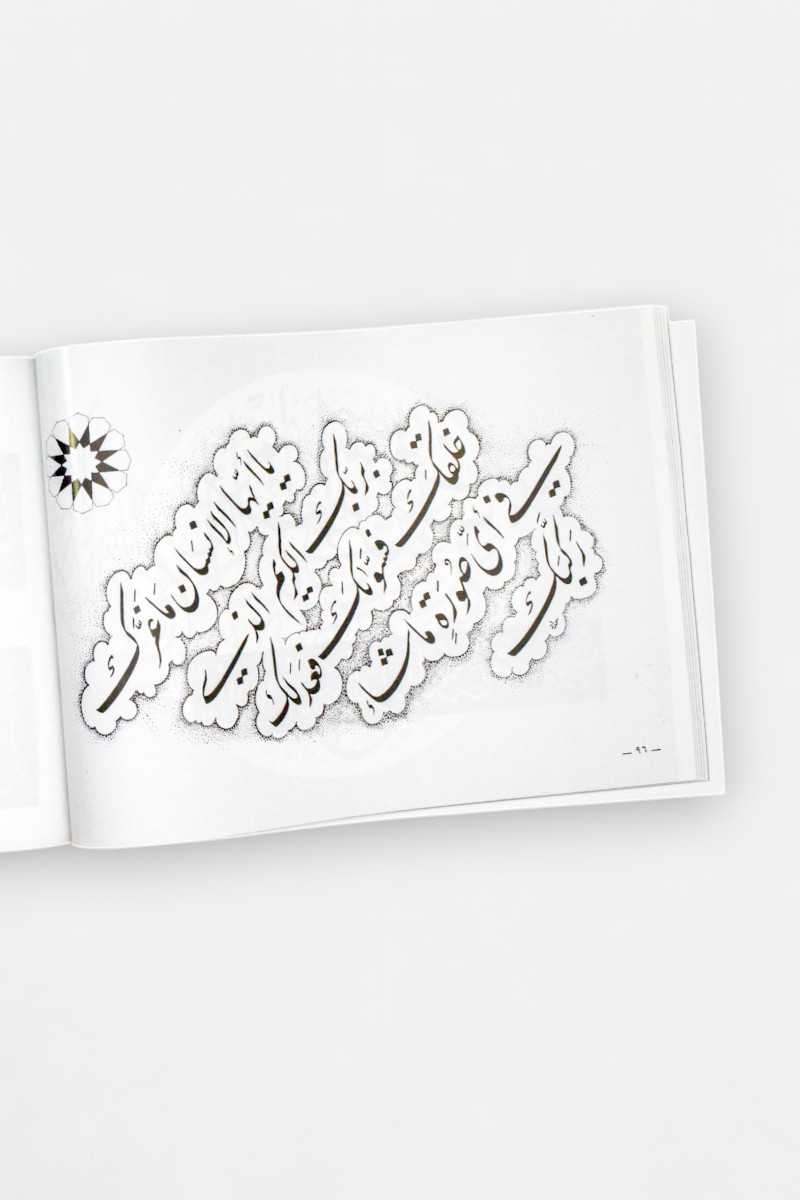 يا ايّها الانسان ما غَرَّكَ
بربّك الكريم الذي
خلقكَ فسوّىكَ فعدلكَ
في أيّ صُورَةٍ ما شاءَ
ركّبكَ
— ٩٦ —